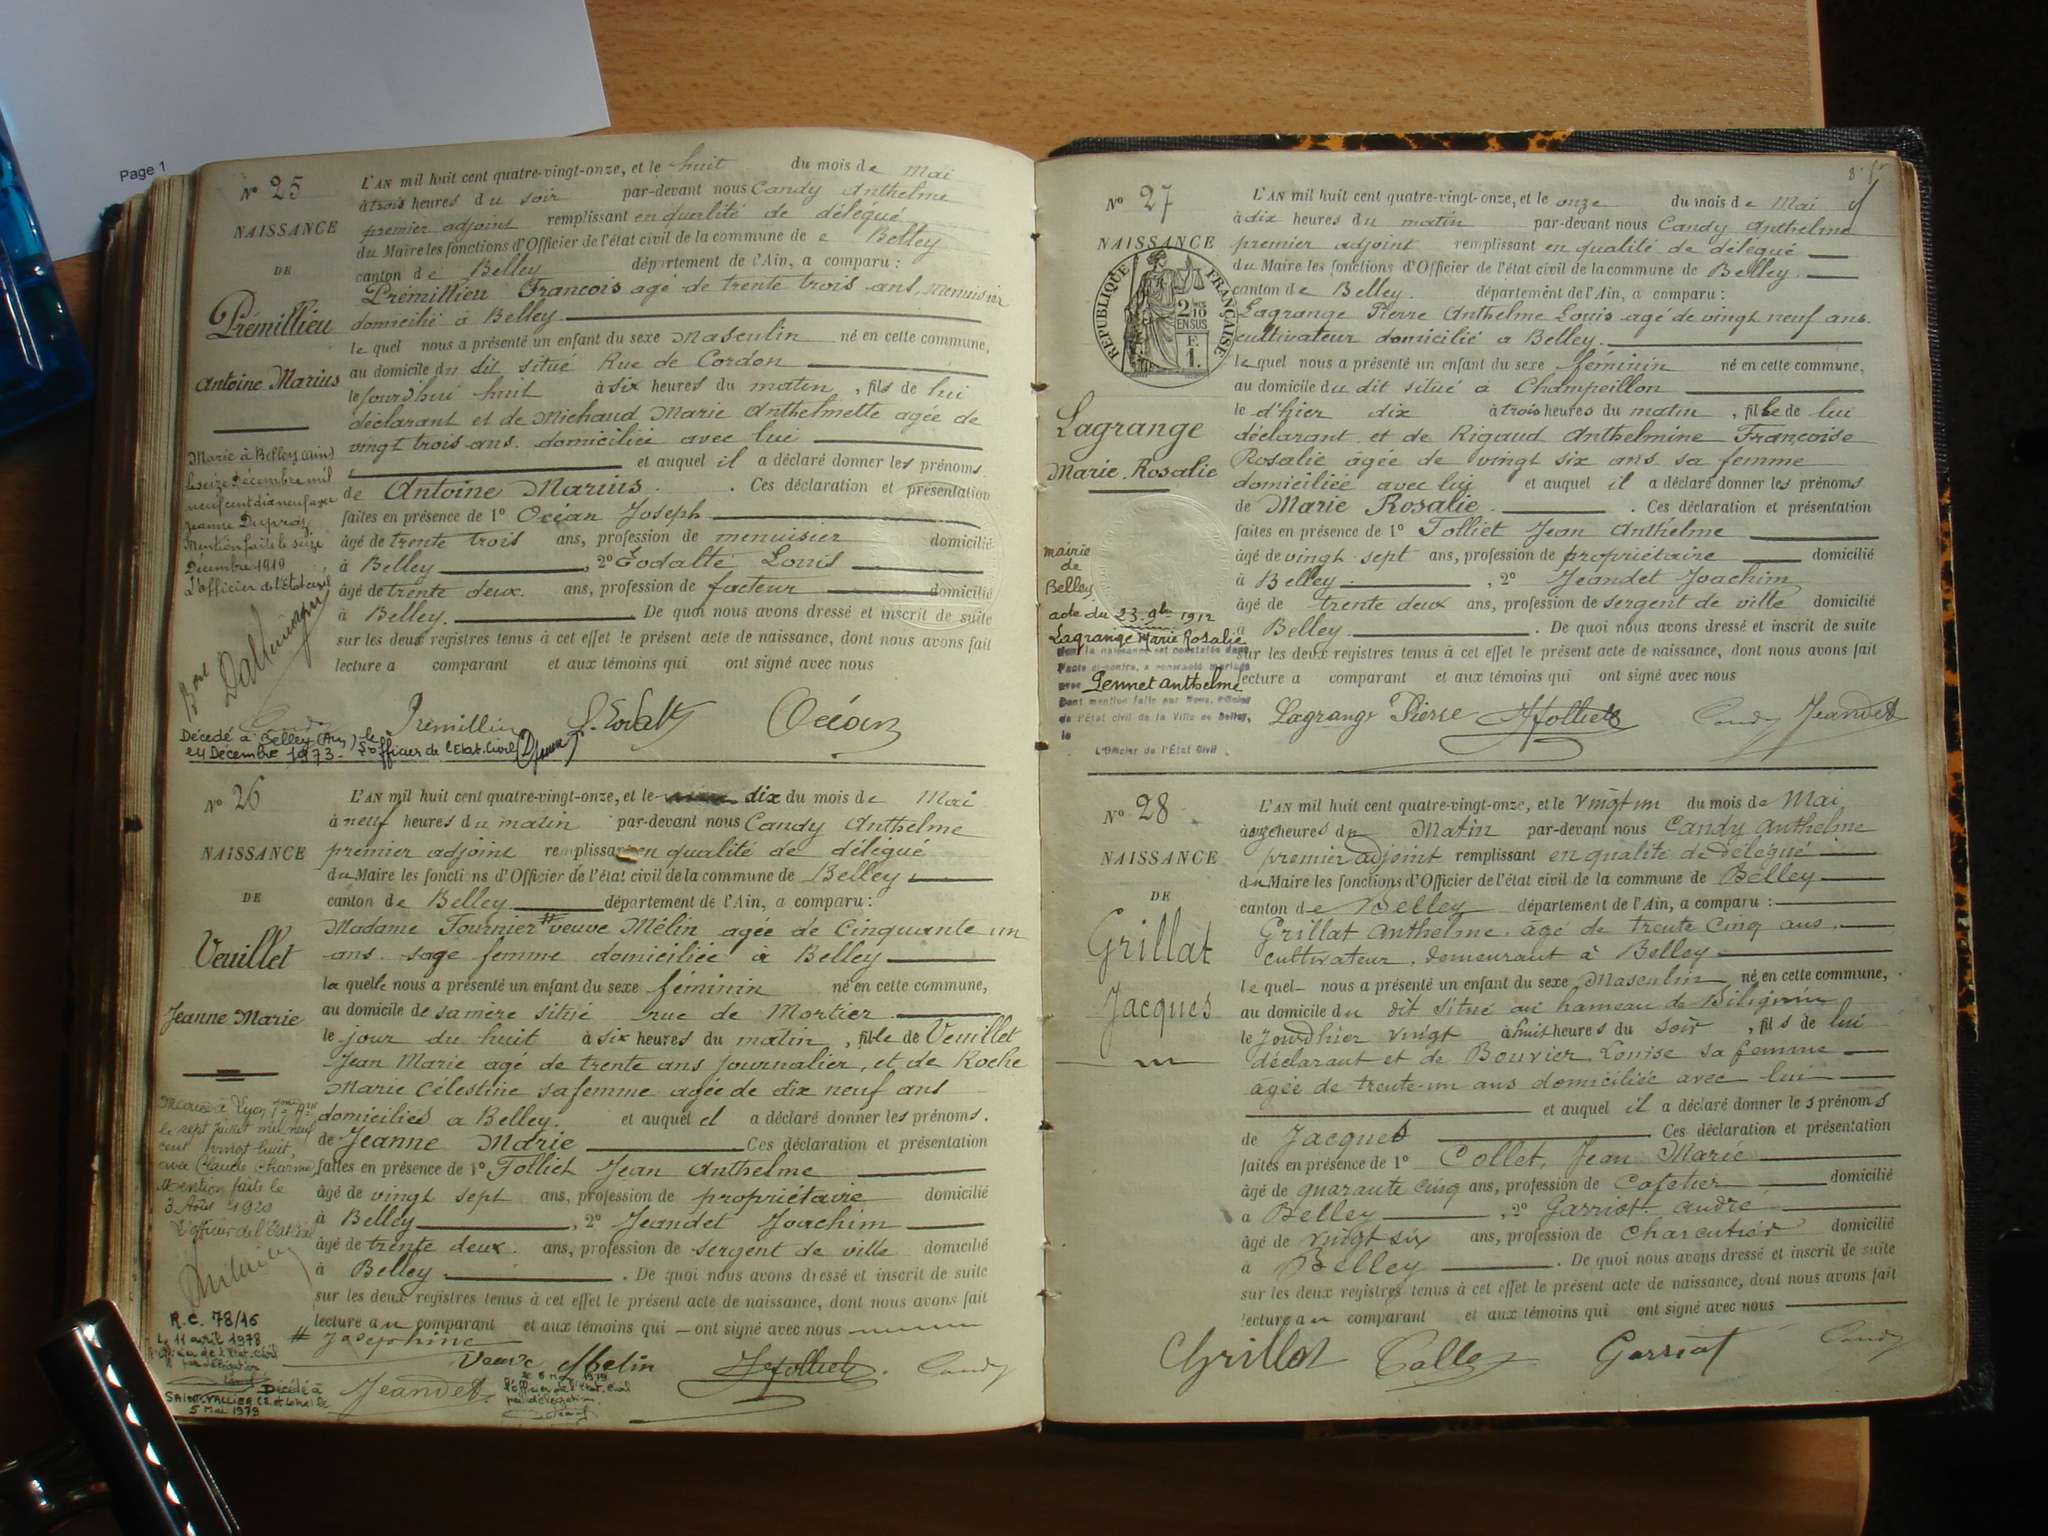 Page 1
N° 25
NAISSANCE
DE
Prémillieu
Antoine Marius
Marié à Belley (Ain)
le seize Décembre mil
neuf cent dix neuf avec
Jeanne Dupraz
Mention faite le seize
Décembre 1919
L'officier de l'Etat civil
Décédé à Belley (Ain) le
24 Décembre 1973 - L'officier de l'Etat-Civil
L'AN mil huit cent quatre-vingt-onze, et le huit du mois de Mai
à trois heures du soir par-devant nous Candy Anthelme
premier adjoint remplissant en qualité de délégué
du Maire les fonctions d'Officier de l'état civil de la commune de Belley
canton de Belley département de l'Ain, a comparu :
Prémillieu François agé de trente trois ans, menuisier
domicilié à Belley
le quel nous a présenté un enfant du sexe Masculin né en cette commune,
au domicile du dit situé Rue de Cordon
le jourd'hui huit à six heures du matin, fils de lui
déclarant et de Michaud Marie Anthelmette agée de
vingt trois ans domiciliée avec lui
et auquel il a déclaré donner les prénoms
de Antoine Marius. Ces déclaration et présentation
faites en présence de 1° Océan Joseph
âgé de trente trois ans, profession de menuisier domicilié
à Belley, 2° Eodalté Louis
âgé de trente deux ans, profession de facteur domicilié
à Belley. De quoi nous avons dressé et inscrit de suite
sur les deux registres tenus à cet effet le présent acte de naissance, dont nous avons fait
lecture a comparant et aux témoins qui ont signé avec nous
Candy Prémillieu Océan
N° 26
NAISSANCE
DE
Veuillet
Jeanne Marie
Mariée à Lyon
le sept Juillet mil neuf
cent vingt huit,
avec Claude Charme
Mention faite le
3 Août 19
L'officier de l'Etat Civil
R.C. 78/16
Le 11 avril 1978
L'officier de l'Etat-Civil
par délégation
Décédé à
SAINT-VALLIER (S. et Loire) le
5 Mai 1979
L'AN mil huit cent quatre-vingt-onze, et le dix du mois de Mai
à neuf heures du matin par-devant nous Candy Anthelme
premier adjoint remplissant en qualité de délégué
du Maire les fonctions d'Officier de l'état civil de la commune de Belley
canton de Belley département de l'Ain, a comparu :
Madame Fournier # veuve Mélin agée de Cinquante un
ans sage femme domiciliée à Belley
la quelle nous a présenté un enfant du sexe féminin né en cette commune,
au domicile de sa mère situé rue de Mortier
le jour du huit à six heures du matin, fille de Veuillet
Jean Marie agé de trente ans journalier, et de Roche
Marie Célestine sa femme agée de dix neuf ans
domiciliés a Belley. et auquel el a déclaré donner les prénoms
de Jeanne Marie Ces déclaration et présentation
faites en présence de 1° Tolliet Jean Anthelme
âgé de vingt sept ans, profession de propriétaire domicilié
à Belley, 2° Jeandet Joachim
âgé de trente deux ans, profession de sergent de ville domicilié
à Belley. De quoi nous avons dressé et inscrit de suite
sur les deux registres tenus à cet effet le présent acte de naissance, dont nous avons fait
lecture au comparant et aux témoins qui ont signé avec nous
# Josephine
Veuve Mélin JATolliet Candy
Jeandet
L'officier de l'Etat-Civil
par délégation
N° 27
NAISSANCE
RÉPUBLIQUE FRANÇAISE
2/10
EN SUS
F.
1.
Lagrange
Marie Rosalie
mairie
de
Belley
acte du 23 9bre 1912
Lagrange Marie Rosalie
dont la naissance est constatée dans
l'acte ci-contre, a contracté mariage
avec Pennet Anthelme
Dont mention faite par Nous, Officier
de l'Etat civil de la Ville de Belley,
le
L'Officier de l'Etat Civil
L'AN mil huit cent quatre-vingt-onze, et le onze du mois de Mai
à dix heures du matin par-devant nous Candy Anthelme
premier adjoint remplissant en qualité de délégué
du Maire les fonctions d'Officier de l'état civil de la commune de Belley.
canton de Belley. département de l'Ain, a comparu :
Lagrange Pierre Anthelme Louis agé de vingt neuf ans.
cultivateur domicilié a Belley.
le quel nous a présenté un enfant du sexe féminin né en cette commune,
au domicile du dit situé à Champeillon
le d'hier dix à trois heures du matin, fille de lui
déclarant et de Rigaud Anthelmine Françoise
Rosalie âgée de vingt six ans sa femme
domiciliée avec lui et auquel il a déclaré donner les prénoms
de Marie Rosalie. Ces déclaration et présentation
faites en présence de 1° Tolliet Jean Anthelme
âgé de vingt sept ans, profession de propriétaire domicilié
à Belley. 2° Jeandet Joachim
âgé de trente deux ans, profession de sergent de ville domicilié
à Belley. De quoi nous avons dressé et inscrit de suite
sur les deux registres tenus à cet effet le présent acte de naissance, dont nous avons fait
lecture a comparant et aux témoins qui ont signé avec nous
Lagrange Pierre JATolliet Candy Jeandet
N° 28
NAISSANCE
DE
Grillat
Jacques
L'AN mil huit cent quatre-vingt-onze, et le vingt un du mois de Mai
à onze heures du Matin par-devant nous Candy Anthelme
premier adjoint remplissant en qualité de Délégué
du Maire les fonctions d'Officier de l'état civil de la commune de Belley
canton de Belley département de l'Ain, a comparu :
Grillat Anthelme, agé de trente Cinq ans,
cultivateur, demeurant à Belley
le quel nous a présenté un enfant du sexe Masculin né en cette commune,
au domicile du dit situé au hameau de Billignin
le Jourd'hier vingt à huit heures du soir, fils de lui
déclarant et de Bouvier Louise sa femme
agée de trente-un ans domiciliée avec lui
et auquel il a déclaré donner les prénoms
de Jacques Ces déclaration et présentation
faites en présence de 1° Collet, Jean Marie
âgé de quarante cinq ans, profession de Cafetier domicilié
a Belley, 2° Garriot André
âgé de vingt six ans, profession de Charcutier domicilié
à Belley. De quoi nous avons dressé et inscrit de suite
sur les deux registres tenus à cet effet le présent acte de naissance, dont nous avons fait
lecture au comparant et aux témoins qui ont signé avec nous
Grillat Collet Garriot Candy